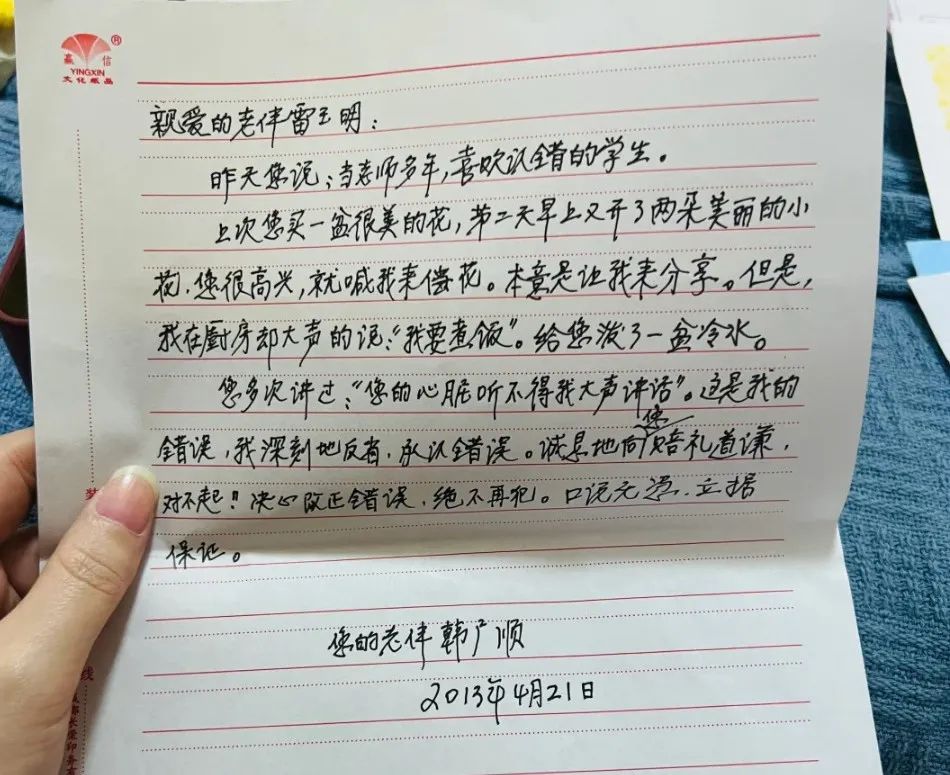 赢信
YINGXIN
文化纸品
亲爱的老伴雷玉明：
昨天您说：当老师多年，喜欢认错的学生。
上次您买一盆很美的花，第二天早上又开了两朵美丽的小
花，您很高兴，就喊我来偿花。本意是让我来分享。但是，
我在厨房却大声的说：“我要煮饭”。给您泼了一盆冷水。
您多次讲过：“您的心脏听不得我大声讲话”。这是我的
错误，我深刻地反省，承认错误。诚恳地向您赔礼道谦，
对不起！！决心改正错误，绝不再犯。口说无凭，立据
保证。
您的老伴韩广顺
2013年4月21日
装
线